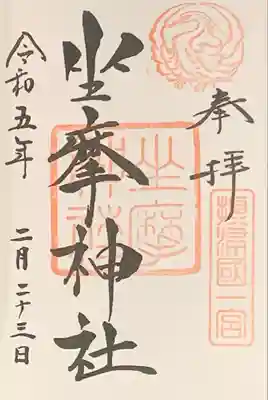 奉拝
摂津國一宮
坐摩神社
坐摩神社
令和五年 二月二十三日